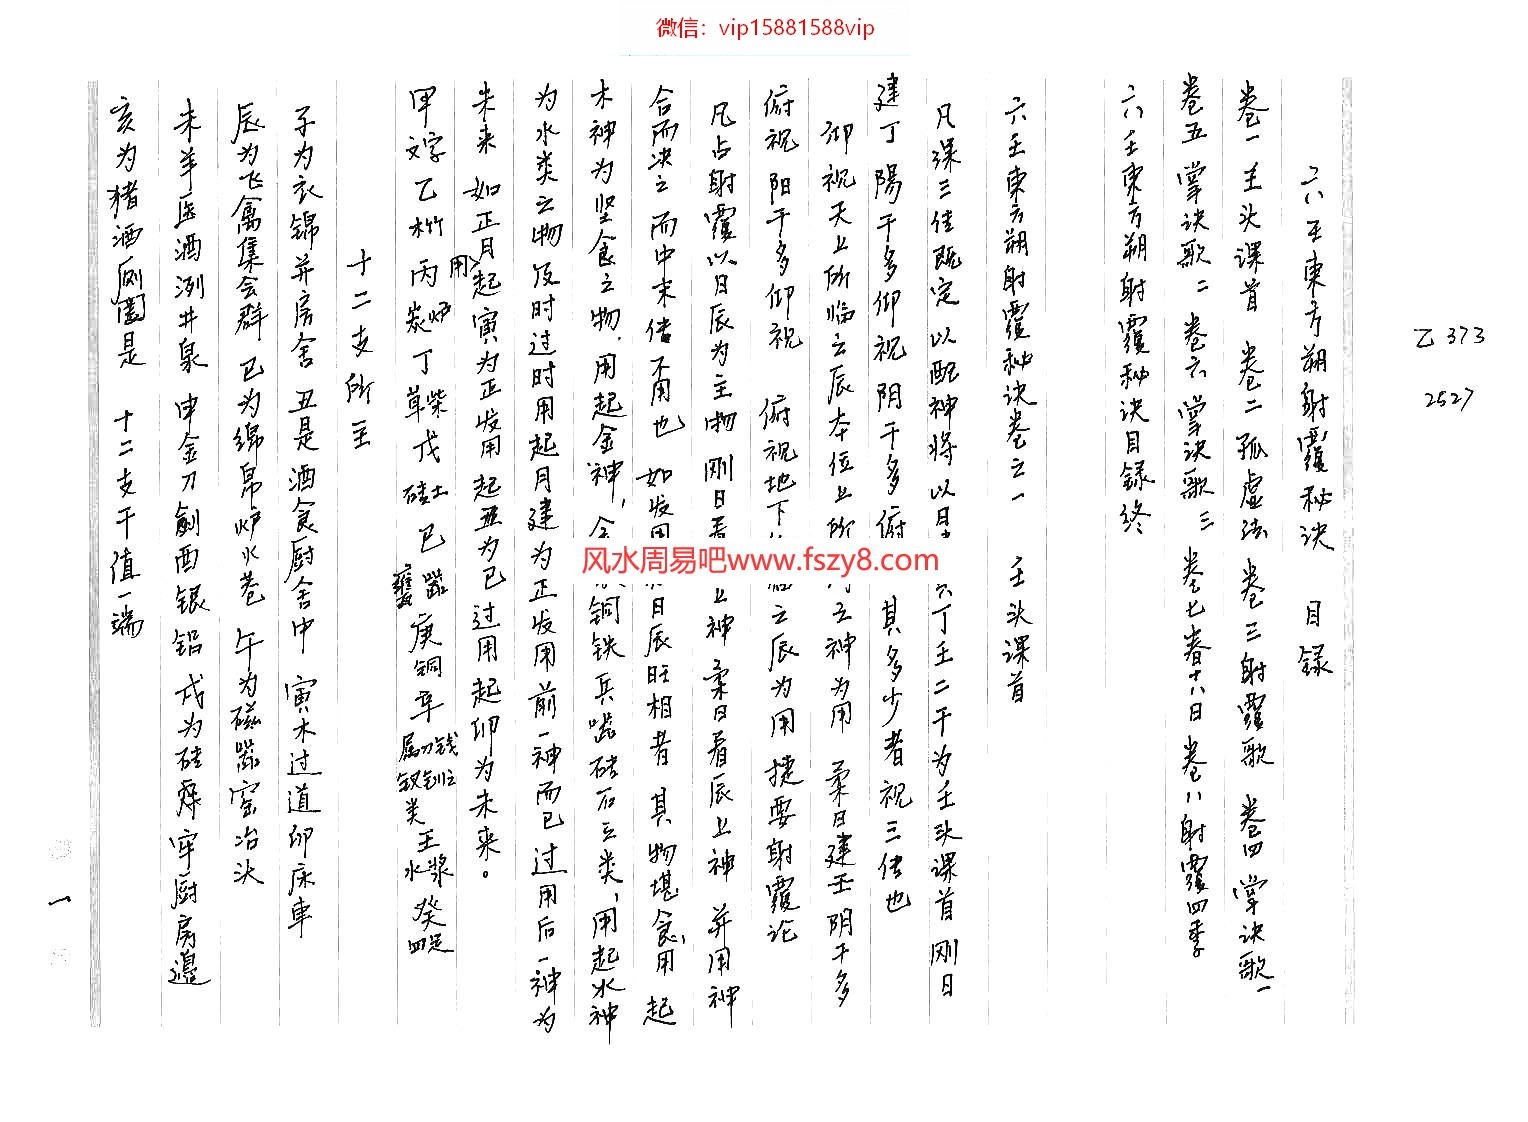 微信：vip15881588vip
乙373
2527
六壬東方朔射覆秘決 目録
卷一 壬头课首 卷二 孤虚法 卷三 射覆歌 卷四 掌决歌一
卷五 掌决歌二 卷六 掌决歌三 卷七 春十八日 卷八 射覆四季
六壬東方朔射覆秘决目録终
六壬東方朔射覆秘决卷之一 壬头课首
凡课三传既定 以配神将 以日 丁壬二干为壬头课首 刚日
建丁 陽干多仰视 阴干多俯 其多少者视三传也
仰视天上所临之辰本位上所 之神为用 柔日建壬 阴干多
俯视 阳干多仰视 俯视地下 之辰为用 捷要射覆论
凡占射覆以日辰为主物 刚日看 上神 柔日看辰上神 并用神
合而决之 而中末传不用也 如发用 日辰旺相者 其物堪食，用起
木神为坚食之物，用起金神， 铜铁兵器砖石之类，用起水神
为水类之物 及时过时用起月建为正发用 前一神而已过用后一神为
未来 如正月用起寅为正发用 起丑为已过用起卯为未来。
甲文字 乙木竹 丙炭炉 丁草柴 戊砖土 已甕器 庚铜 辛属刀钱钗钏 类 壬水浆 癸四足
十二支所主
子为衣锦并房舍 丑是酒食厨舍中 寅木过道卯床車
辰为飞禽集会群 已为绵帛炉火巷 午为磁器窑冶决
未羊医酒洌井泉 申金刀劍酉银铅 戌为砖 牢厨房邊
亥为猪酒厕圊是 十二支干值一端
风水周易吧www.fszy8.com
一